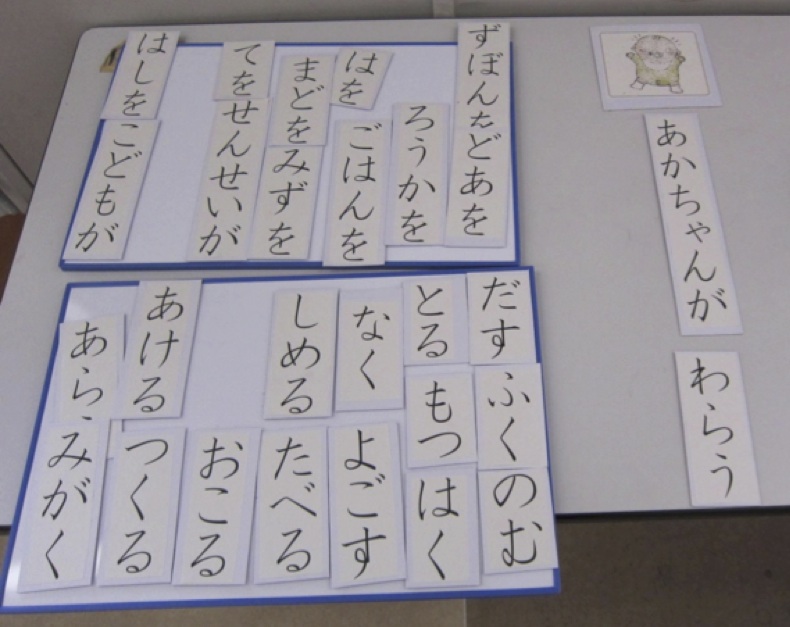 あかちゃんが
わらう
ずぼんを
どあを
ろうかを
はを
ごはんを
まどを
みずを
てを
せんせいが
はしを
こどもが
だす
ふく
のむ
とる
もつ
はく
なく
よごす
しめる
たべる
おこる
あける
つくる
あら
みがく